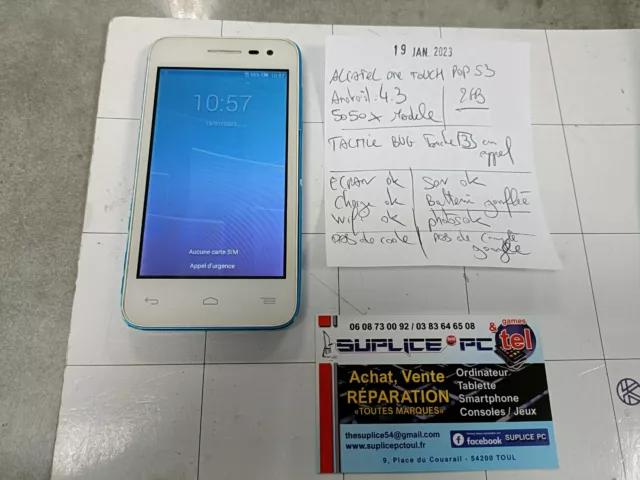 10:57
Aucune carte SIM
Appel d'urgence
19 JAN. 2023
ALCATEL ONE TOUCH POP S3
Android 4.3
5050X Modele
TACTILE BUG Touche 3 en appel
ECRAN ok
Son ok
Charge ok
Batterie gonflée
Wifi ok
photos ok
pas de code
pas de compte google
06 08 73 00 92 / 03 83 64 65 08
games
& tel
SUPLICE PC
Achat, Vente
RÉPARATION
«TOUTES MARQUES»
Ordinateur
Tablette
Smartphone
Consoles / Jeux
thesuplice54@gmail.com
www.suplicepctoul.fr
facebook SUPLICE PC
9, Place du Couarail - 54200 TOUL